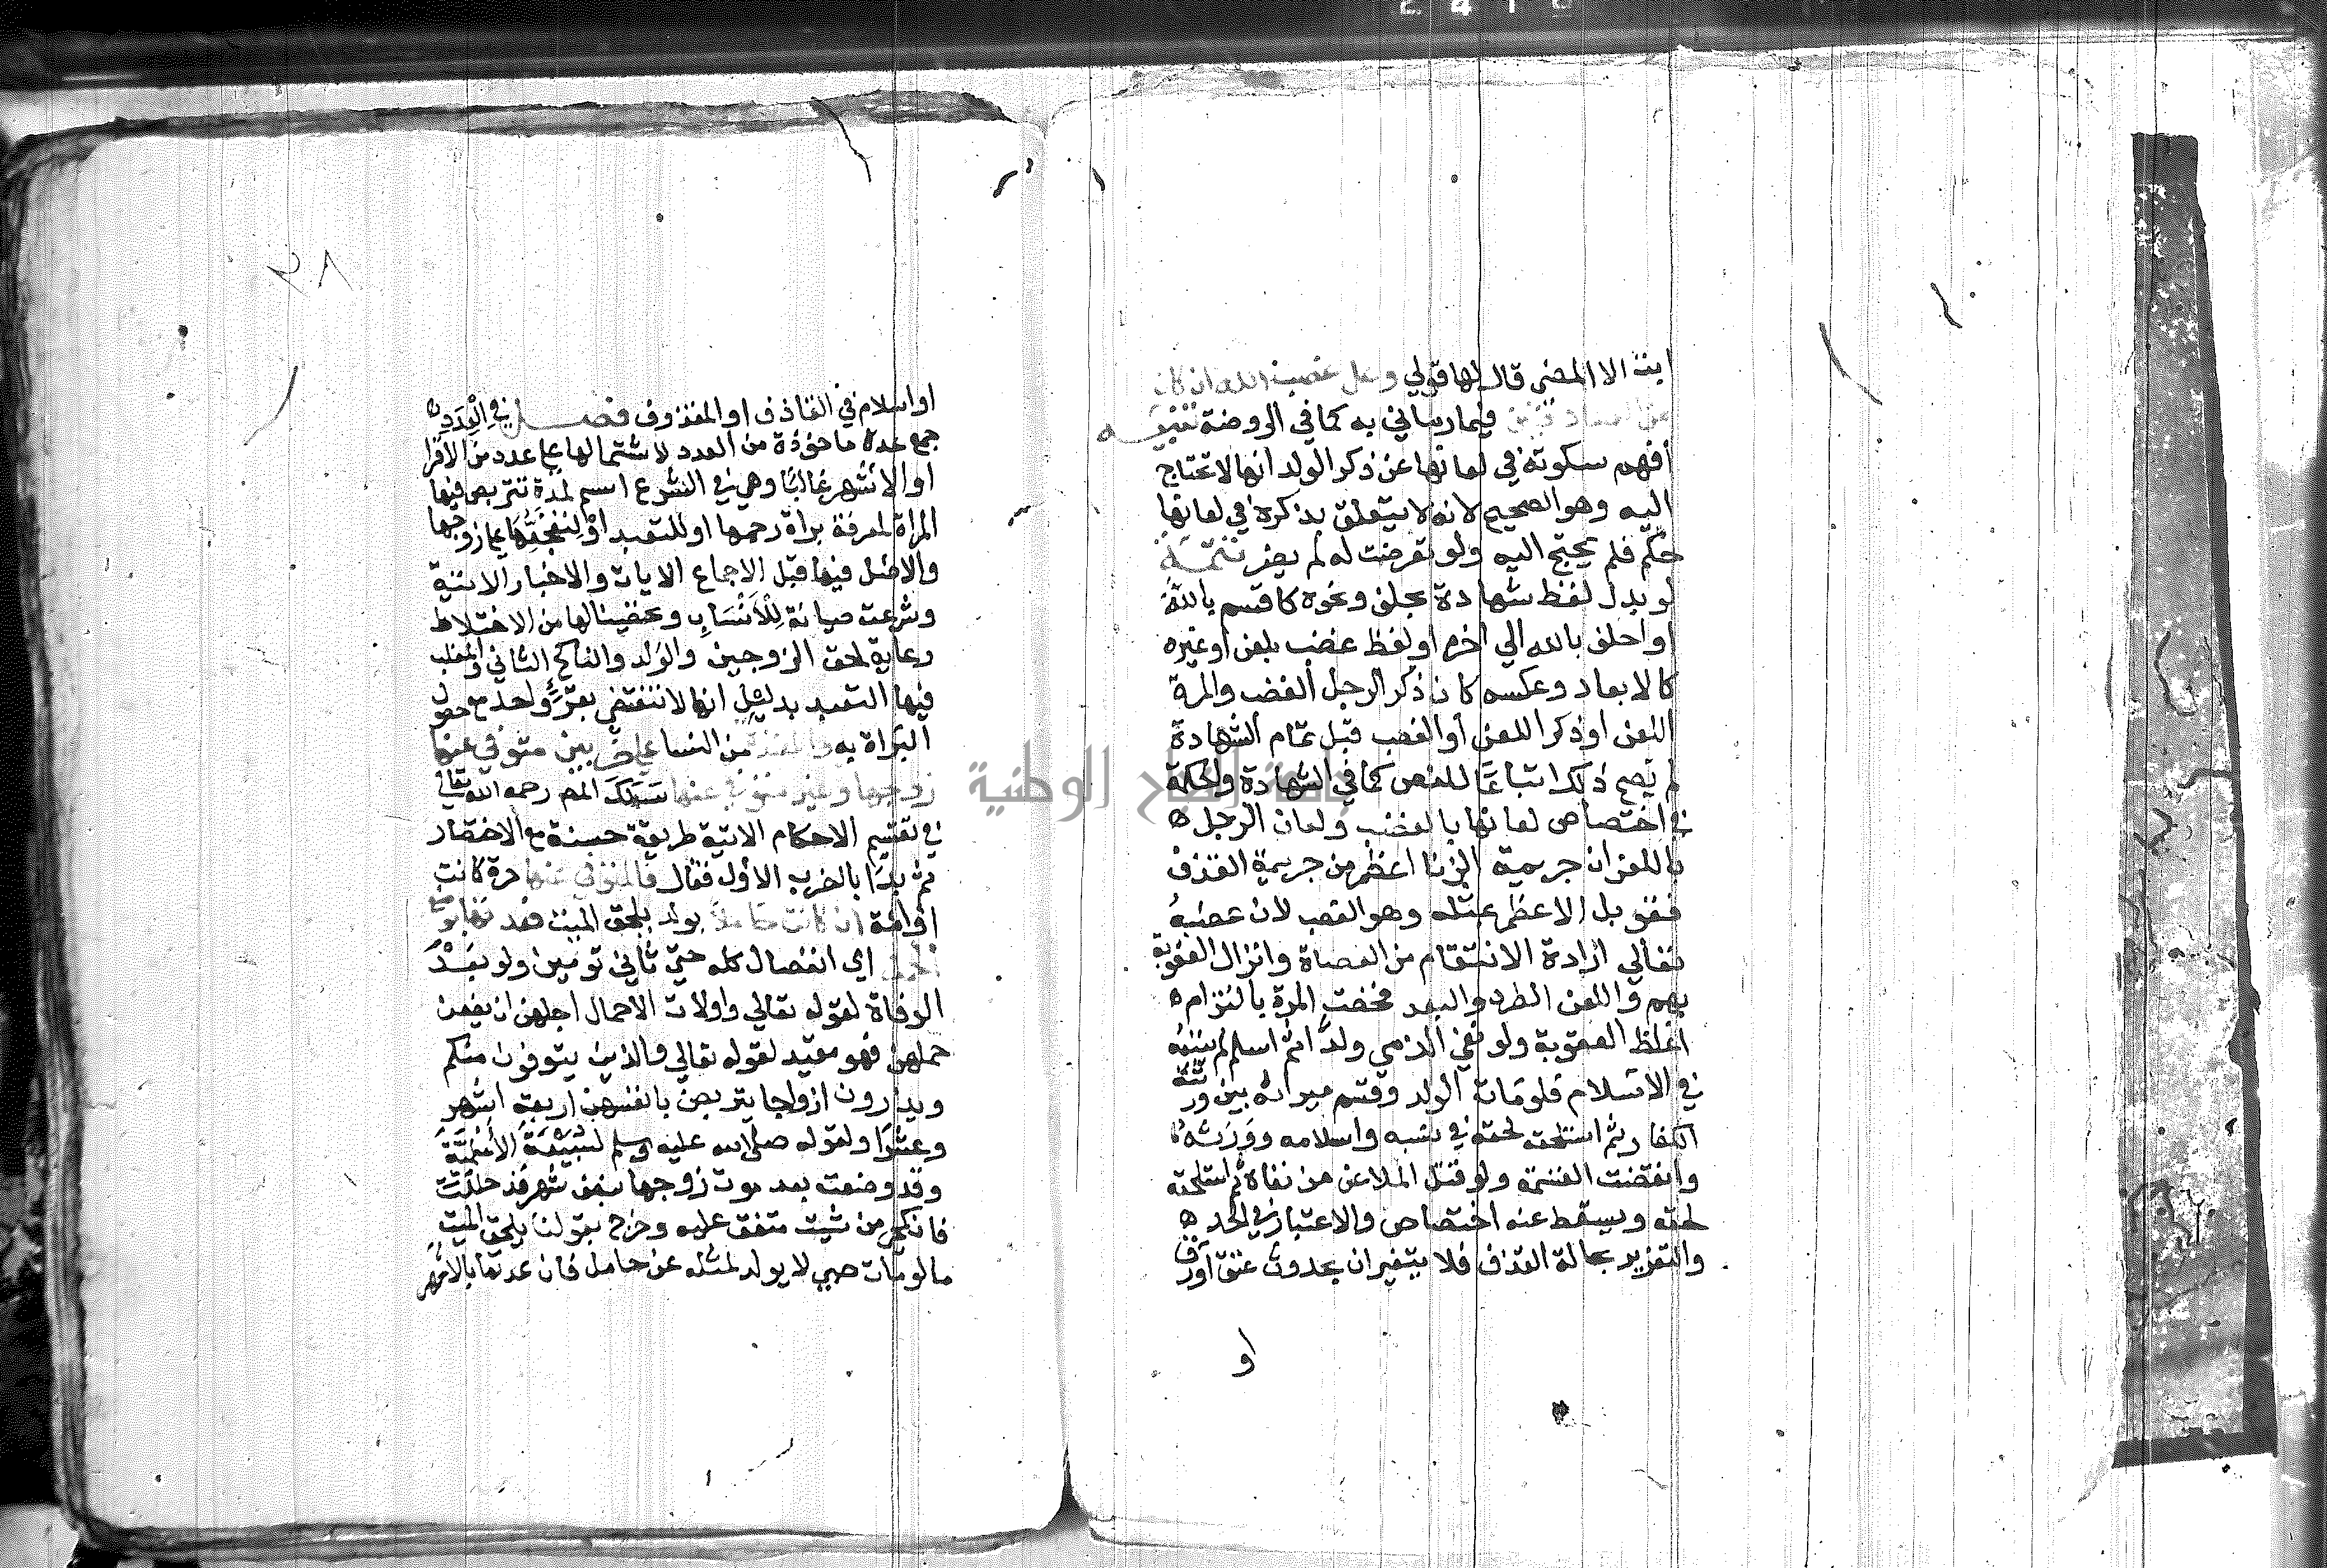 ابت الا المضي قال لها قولي وعلي غضب الله ان كان
من الصادقين فيما رماني به كما في الروضة تنبيه
أفهم سكوته في لعانها عن ذكر الولد انها لا تحتاج
اليه وهو الصحيح لانه لا يتعلق بذكره في لعانها
حكم فلم يحتج اليه ولو تعرضت له لم يضر تتمة
لو بدل لفظ شهادة بحلف ونحوه كاقسم بالله
او احلف بالله الي اخره او لفظ غضب بلعن او غيره
كالابعاد وعكسه كان ذكر الرجل الغضب والمرة
اللعن او ذكر اللعن أو الغضب قبل تمام الشهادة
لم يصح ذلك اتباعًا للنص كما في الشهادة والحكمة
في اختصاص لعانها بالغضب ولعان الرجل ه
باللعن ان جريمة الزنا اعظم من جريمة القذف
فقوبل الاعظم بمثله وهو الغضب لان غضبه
تعالي ارادة الانتقام من العصاة وانزال العقوبة
بهم واللعن الطرد والبعد فخصت المرة بالتزام ه
اغلظ العقوبة ولو نفي الذمي ولدًا ثم اسلم لم يتبعه
في الاسلام فلو مات الولد وقسم ميراثه بين ورثته
الكفار ثم استلحقه لحقه في نسبه واسلامه وورثه
وانتقضت القسمة ولو قتل الملاعن من نفاه ثم استلحقه
لحقه ويسقط عنه اختصاص والاعتبار في الحد ه
والتعزير بحالة القذف فلا يتغيران بحدوث عتق أو رق
او
٢٨
او اسلام في القاذف او المقذوف فصل في العدد
جمع عدة ماخوذة من العدد لاشتمالها علي عدد من الاقرا
او الاشهر غالبًا وهي في الشرع اسم لمدة تتربص فيها
المراة لمعرفة براة رحمها او للتعبد أو لتفجعها علي زوجها
والاصل فيها قبل الاجماع الايات والاخبار الاتية
وشرعت صيانة للأنساب وتحصينا لها من الاختلاط
رعاية لحق الزوجين والولد والناكح الثاني والمغلب
فيها التعبد بدليل انها لا تنقضي بقرء واحد مع حصول
البراة به والمعتدة من النسا علي ضربين متوفي عنها
زوجها وغير متوفي عنها سلك المص رحمه الله تعالي
في تقسيم الاحكام الاتية طريقة حسنة مع الاختصار
ثم بدأ بالضرب الأول فقال فالمتوفي عنها حرة كانت
او امة ان كانت حاملا بولد يلحق الميت فعدتها بوضع
الحمل اي انفصال كله حتي ثاني توامين ولو بعد
الوفاة لقوله تعالي واولات الاحمال اجلهن ان يضعن
حملهن فهو مقيد لقوله تعالي والذين يتوفون منكم
ويذرون ازواجا يتربصن بانفسهن اربعة اشهر
وعشرا ولقوله صلى الله عليه وسلم لسبيعة الأسلمية
وقد وضعت بعد موت زوجها بنصف شهر قد حللت
فانكحي من شيت متفق عليه وخرج بقولنا يلحق الميت
ما لو مات صبي لا يولد لمثله عن حامل فان عدتها بالاشهر
جامعة النجاح الوطنية